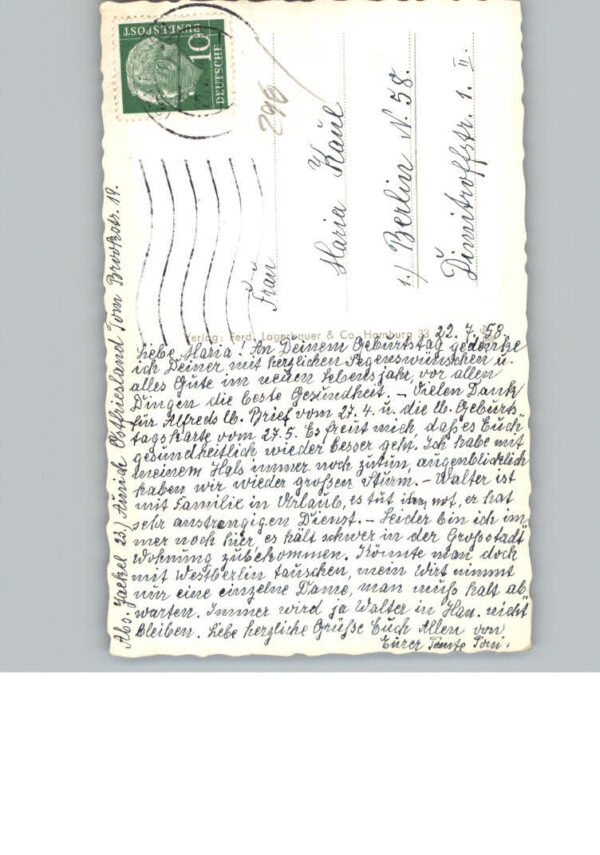 DEUTSCHE
BUNDESPOST
10
296
Frau
Maria Kaul
1.) Berlin N. 58.
Dimitroffstr. 1. II.
Verlag: Ferd. Lagerbauer & Co. Hamburg 33
22.7.58
Liebe Maria! An Deinem Geburtstag gedenke
ich Deiner mit herzlichen Segenswünschen u.
alles Gute im neuen Lebensjahr, vor allen
Dingen die beste Gesundheit. – Vielen Dank
für Alfreds lb. Brief vom 27.4. u. die lb. Geburts
tagskarte vom 27.5. Es freut mich, daß es Euch
gesundheitlich wieder besser geht. Ich habe mit
meinem Hals immer noch zutun, augenblicklich
haben wir wieder großen Sturm. – Walter ist
mit Familie in Urlaub, es tut not, er hat
sehr anstrengigen Dienst. – Leider bin ich im
mer noch hier, es hält schwer in der Großstadt
Wohnung zubekommen. Könnte man doch
mit Westberlin tauschen, mein Wirt nimmt
nur eine einzelne Dame, man muß halt ab
warten. Immer wird ja Walter in Han. nicht
bleiben. Liebe herzliche Grüße Euch Allen von
Eurer Tante Toni.
Abs. Jaekel 23.) Aurich Ostfriesland Tom Brookstr. 19.